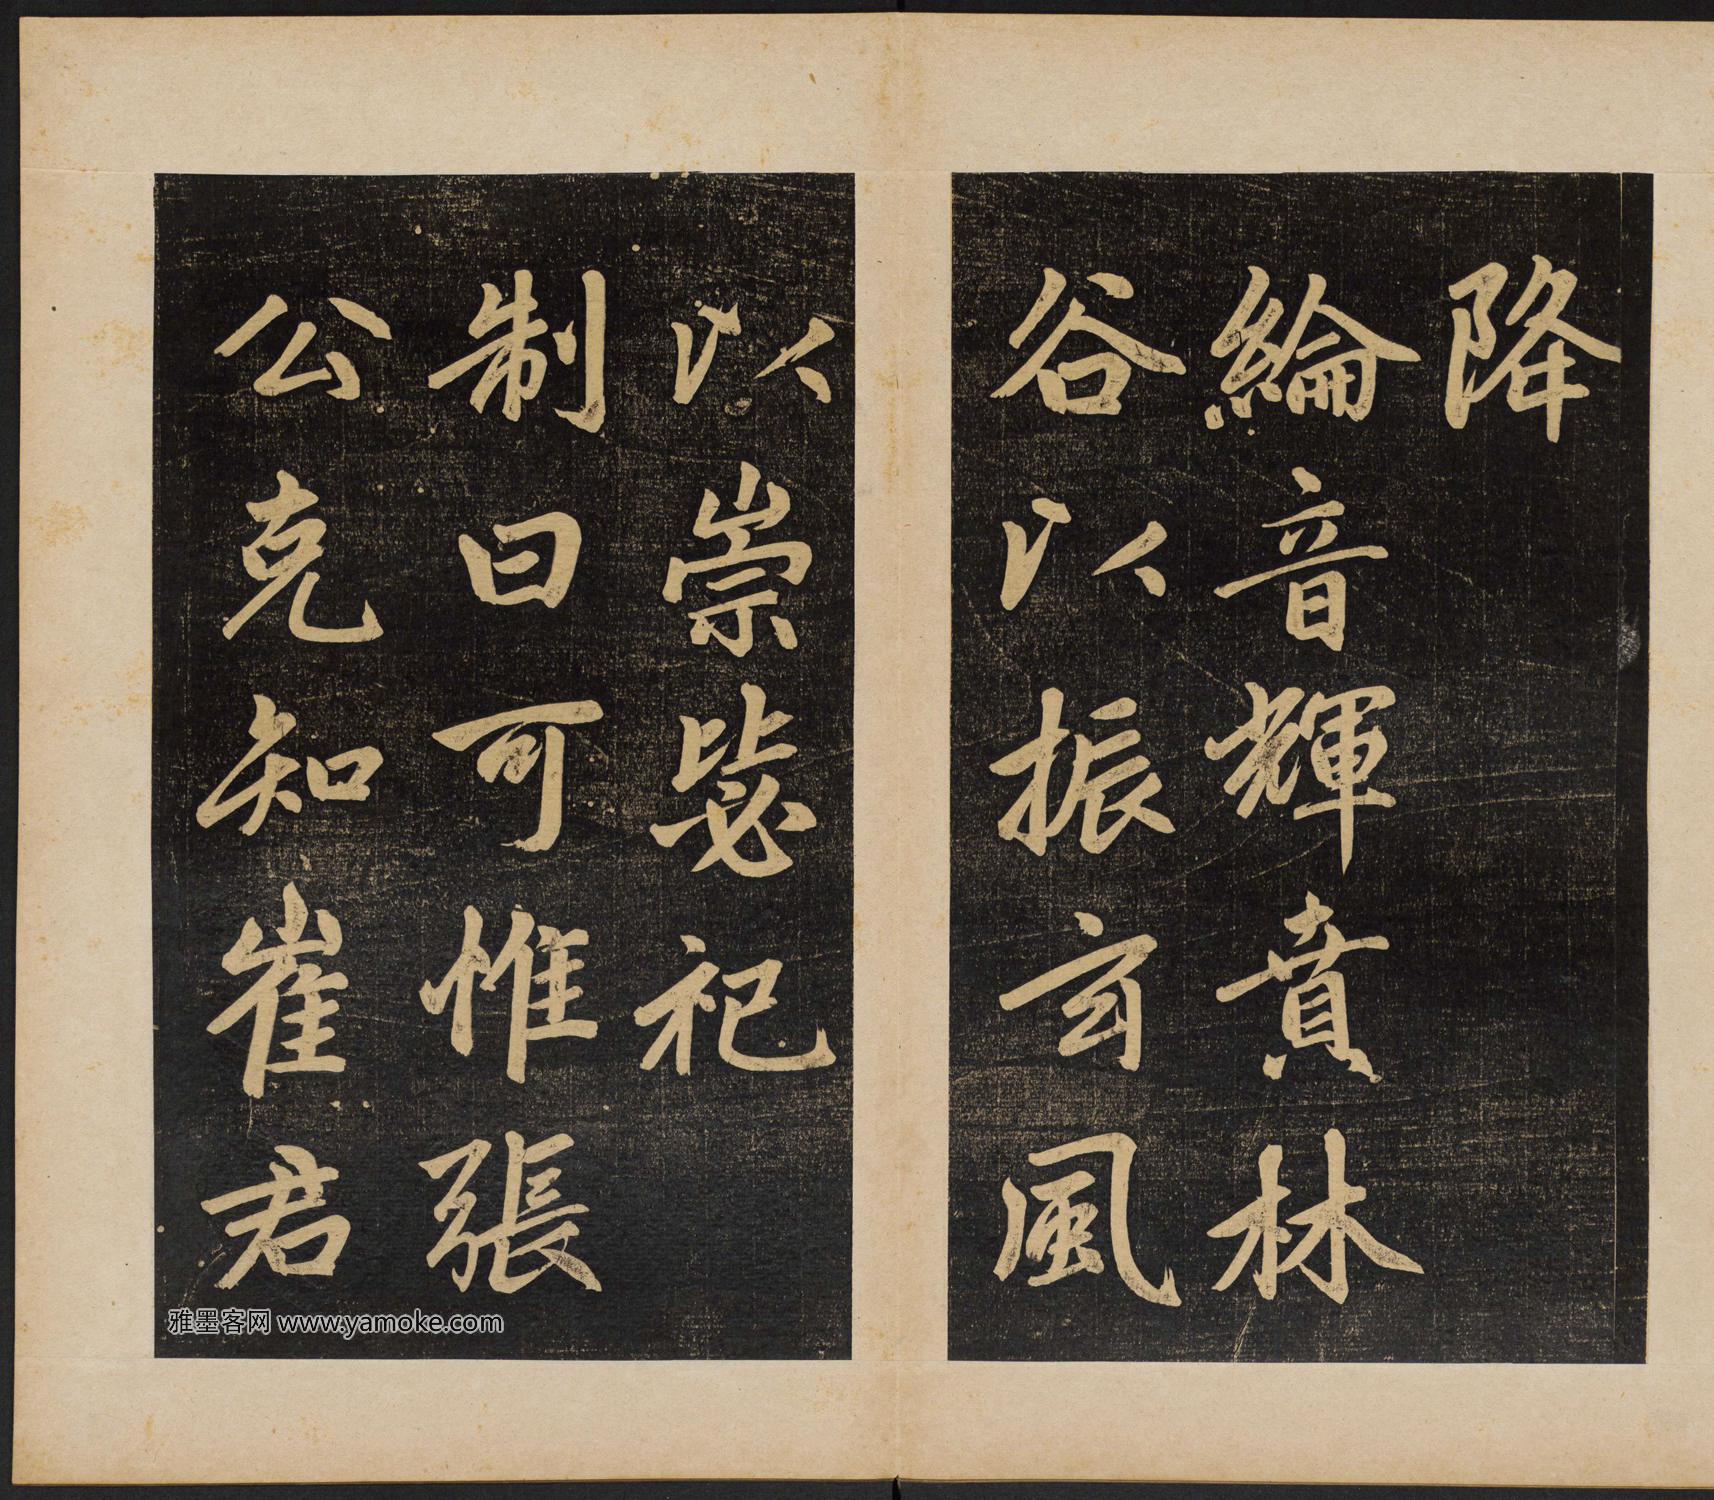 降
綸音輝賁林
谷以振玄風
以崇毖祀
制曰可惟張
公克知崔君
雅墨客网 www.yamoke.com